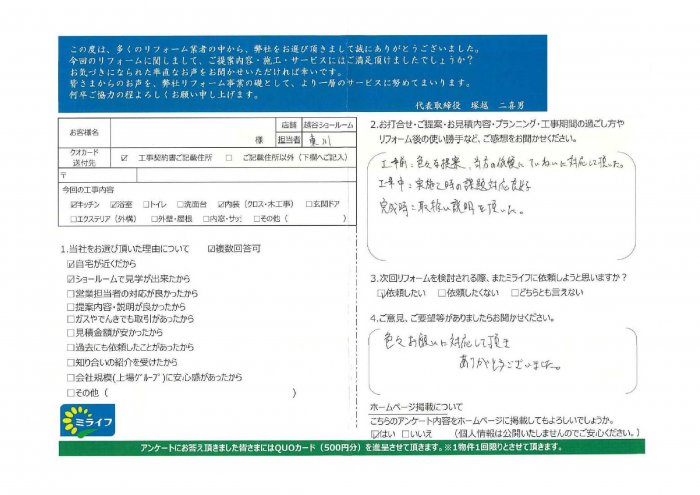 この度は、多くのリフォーム業者の中から、弊社をお選び頂きまして誠にありがとうございました。
今回のリフォームに関しまして、ご提案内容・施工・サービスにはご満足頂けましたでしょうか?
お気づきになられた率直なお声をお聞かせいただければ幸いです。
皆さまからのお声を、弊社リフォーム事業の礎として、より一層のサービスに努めてまいります。
何卒ご協力の程よろしくお願い申し上げます。
代表取締役 塚越 二喜男
お客様名 様
店舗 越谷ショールーム
担当者
クオカード送付先 ☑ 工事契約書ご記載住所 □ ご記載住所以外(下欄へご記入)
〒
今回の工事内容
☑キッチン ☑浴室 □トイレ □洗面台 ☑内装(クロス・木工事) □玄関ドア
□エクステリア(外構) □外壁・屋根 □内窓・サッシ □その他( )
1.当社をお選び頂いた理由について ☑複数回答可
☑自宅が近くだから
☑ショールームで見学が出来たから
□営業担当者の対応が良かったから
□提案内容・説明が良かったから
□ガスやでんきでも取引があったから
□見積金額が安かったから
□過去にも依頼したことがあったから
□知り合いの紹介を受けたから
□会社規模(上場グループ)に安心感があったから
□その他( )
ミライフ
2.お打合せ・ご提案・お見積内容・プランニング・工事期間の過ごし方や
リフォーム後の使い勝手など、ご感想をお聞かせください。
工事前:色々な提案、当方の依頼にていねいに対応して頂いた。
工事中:実施上時の課題対応良好
完成時:取扱い説明を頂いた。
3.次回リフォームを検討される際、またミライフに依頼しようと思いますか?
☑依頼したい □依頼したくない □どちらとも言えない
4.ご意見、ご要望等がありましたらお聞かせください。
色々お願いに対応して頂き
ありがとうございました。
ホームページ掲載について
こちらのアンケート内容をホームページに掲載してもよろしいでしょうか。
☑はい □いいえ (個人情報は公開いたしませんのでご安心ください。)
アンケートにお答え頂きました皆さまにはQUOカード(500円分)を進呈させて頂きます。※1物件1回限りとさせて頂きます。